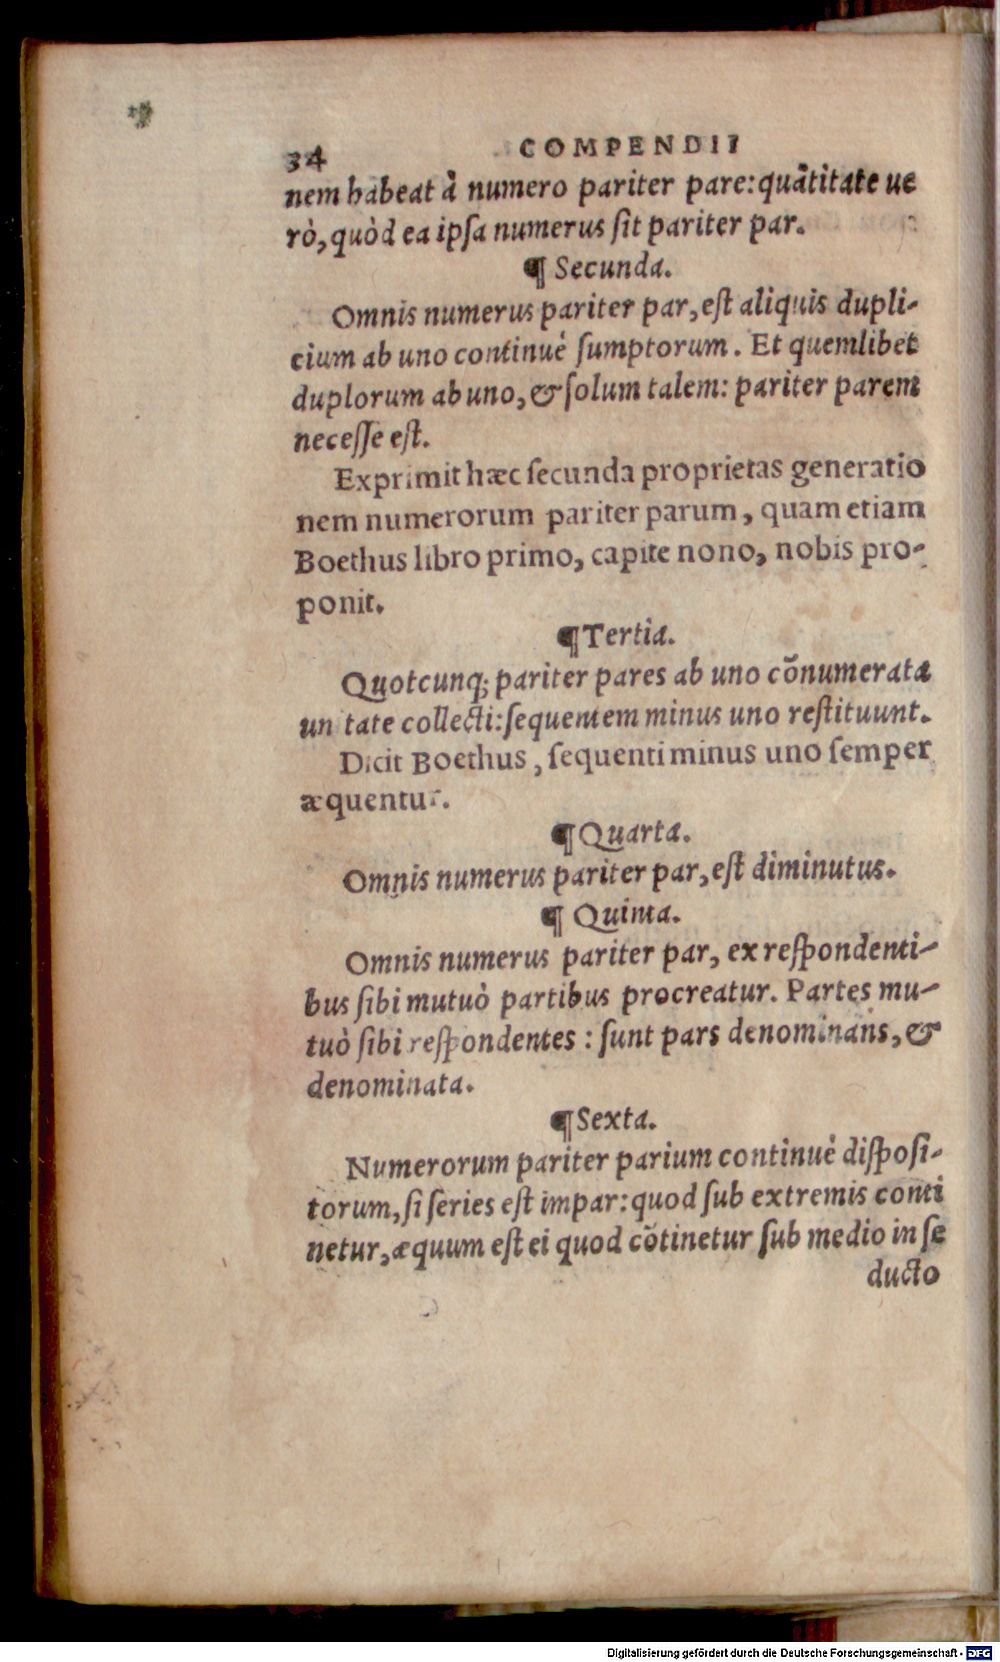 34 COMPENDII
nem habeat à numero pariter pare: quãtitate ue
rò, quòd ea ipsa numerus sit pariter par.
¶ Secunda.
Omnis numerus pariter par, est aliquis dupli-
cium ab uno continuè sumptorum. Et quemlibet
duplorum ab uno, & solum talem: pariter parem
necesse est.
Exprimit hæc secunda proprietas generatio
nem numerorum pariter parum, quam etiam
Boethus libro primo, capite nono, nobis pro-
ponit.
¶ Tertia.
Quotcunq; pariter pares ab uno cõnumerata
un tate collecti: sequentem minus uno restituunt.
Dicit Boethus, sequenti minus uno semper
æquentur.
¶ Quarta.
Omnis numerus pariter par, est diminutus.
¶ Quinta.
Omnis numerus pariter par, ex respondenti-
bus sibi mutuò partibus procreatur. Partes mu-
tuò sibi respondentes: sunt pars denominans, &
denominata.
¶ Sexta.
Numerorum pariter parium continuè disposi-
torum, si series est impar: quod sub extremis conti
netur, æquum est ei quod cõtinetur sub medio in se
ducto
Digitalisierung gefördert durch die Deutsche Forschungsgemeinschaft - DFG